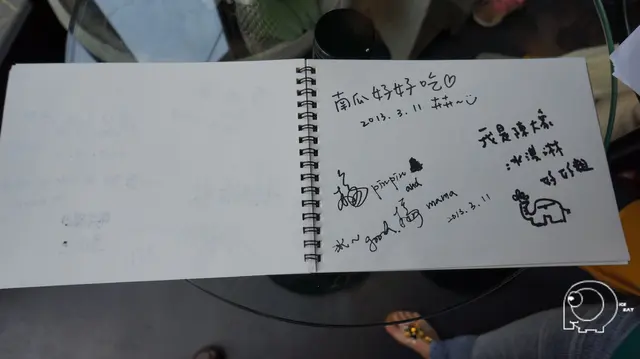 南瓜好好吃♡
2013.3.11
我是陳大象
冰淇淋
pinpin
and
good
mama
2013.3.11
ICE
EAT